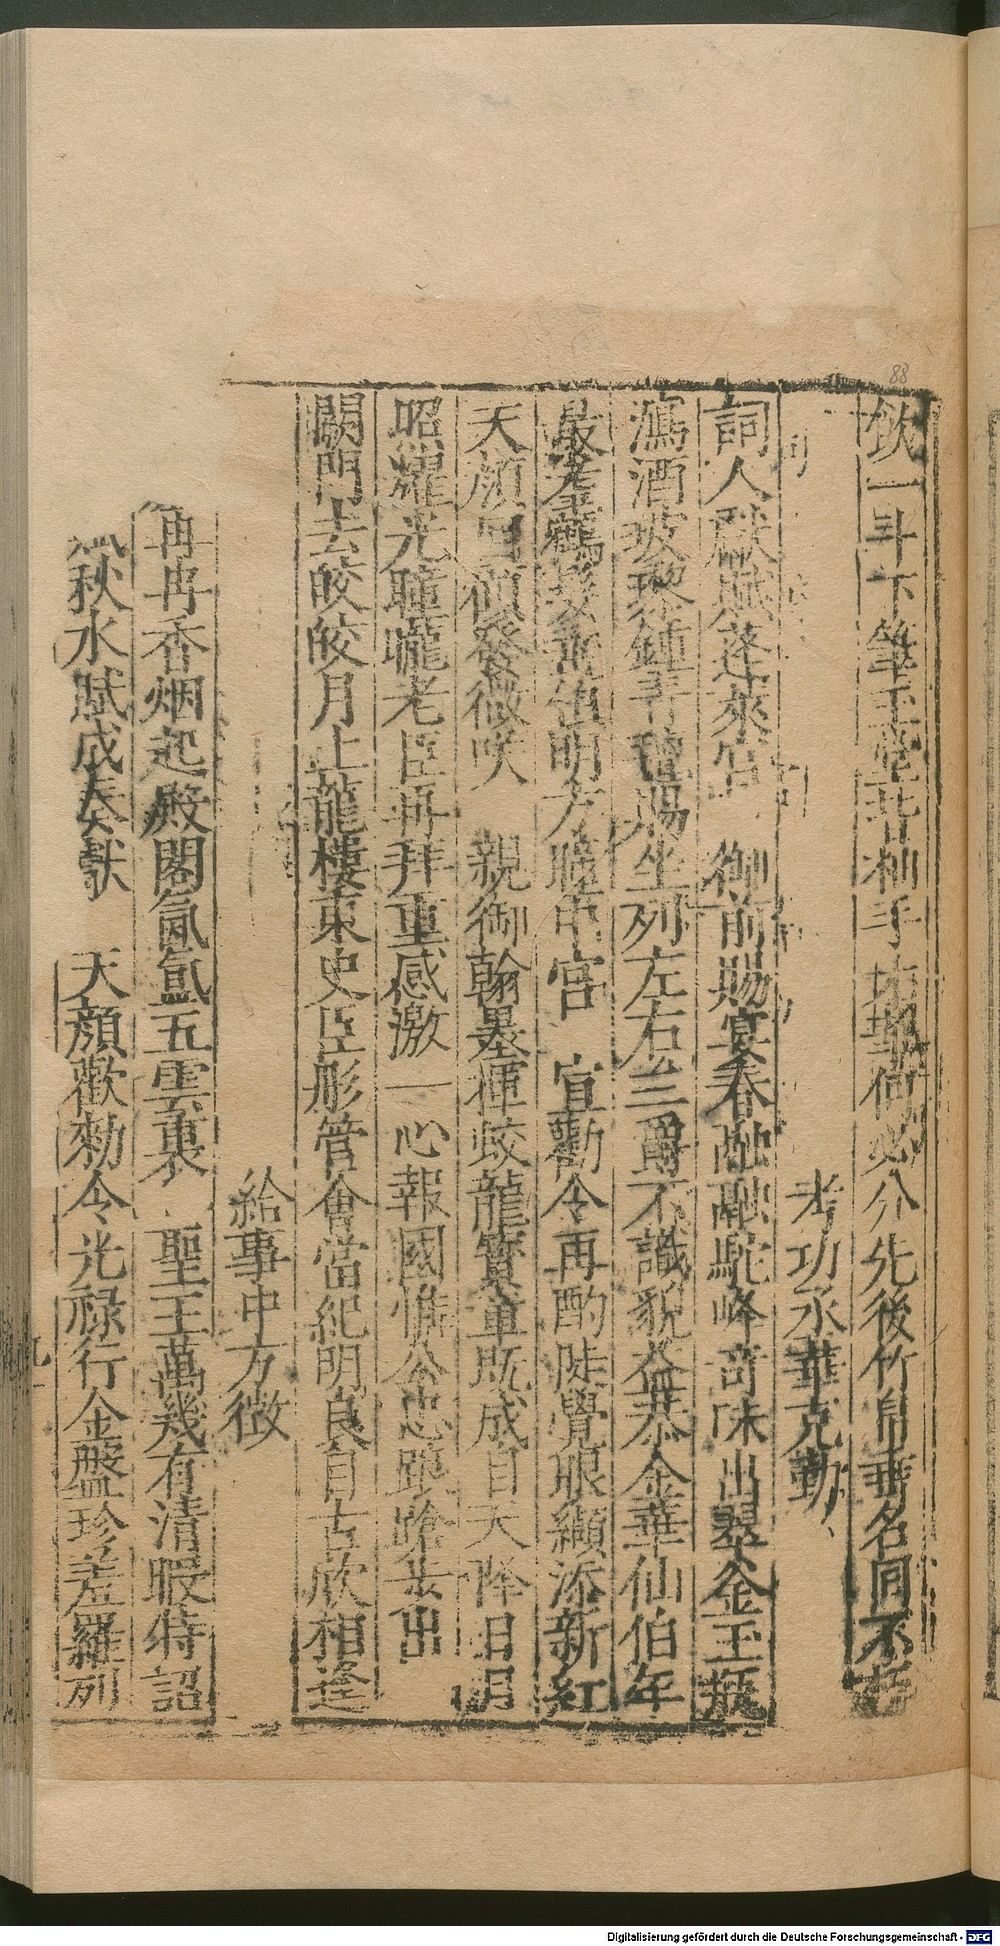 飲一斗下筆玉堂皆袖手　何必分先後竹帛垂名同不朽
考功丞華克勤
詞人獻賦蓬萊宮　御前賜宴春融融駝峰奇味出翠釜玉瓶
瀉酒玻瓈鍾　賜坐列左右三爵不識貌益恭金華仙伯年
最老　明方瞳中宮　宣勸令再酌陡覺眼纈添新紅
天顔　發微咲　親御翰墨揮蛟龍寶章既成自天降日月
昭耀光曈曨老臣再拜重感激一心報國惟公忠踉蹌步出
闕門去皎皎月上龍樓東史臣彤管會當紀明良自古欣相逢
給事中方徵
冉冉香烟起殿閣氤氳五雲裏　聖王萬幾有清暇侍詔
秋水賦成奏獻　天顔歡勑令光祿行金盤珍羞羅列
88
Digitalisierung gefördert durch die Deutsche Forschungsgemeinschaft - DFG